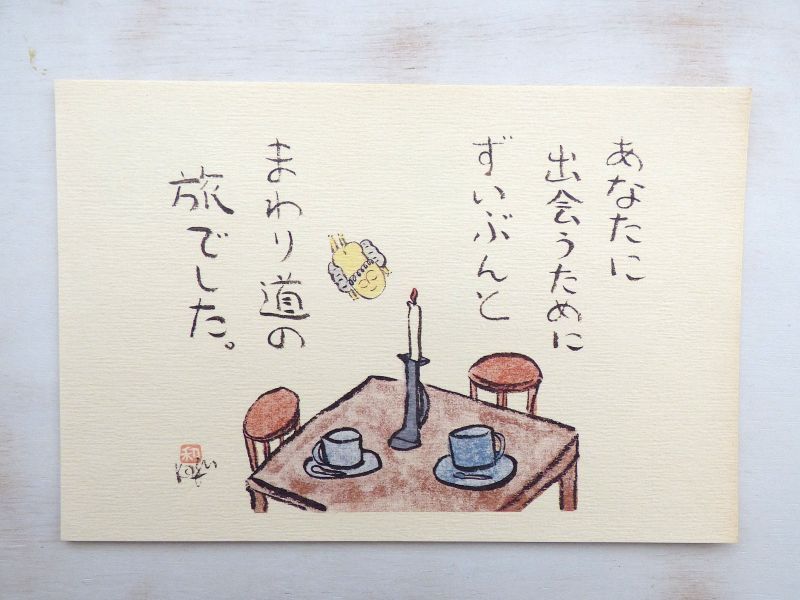 あなたに
出会うために
ずいぶんと
まわり道の
旅でした。
和